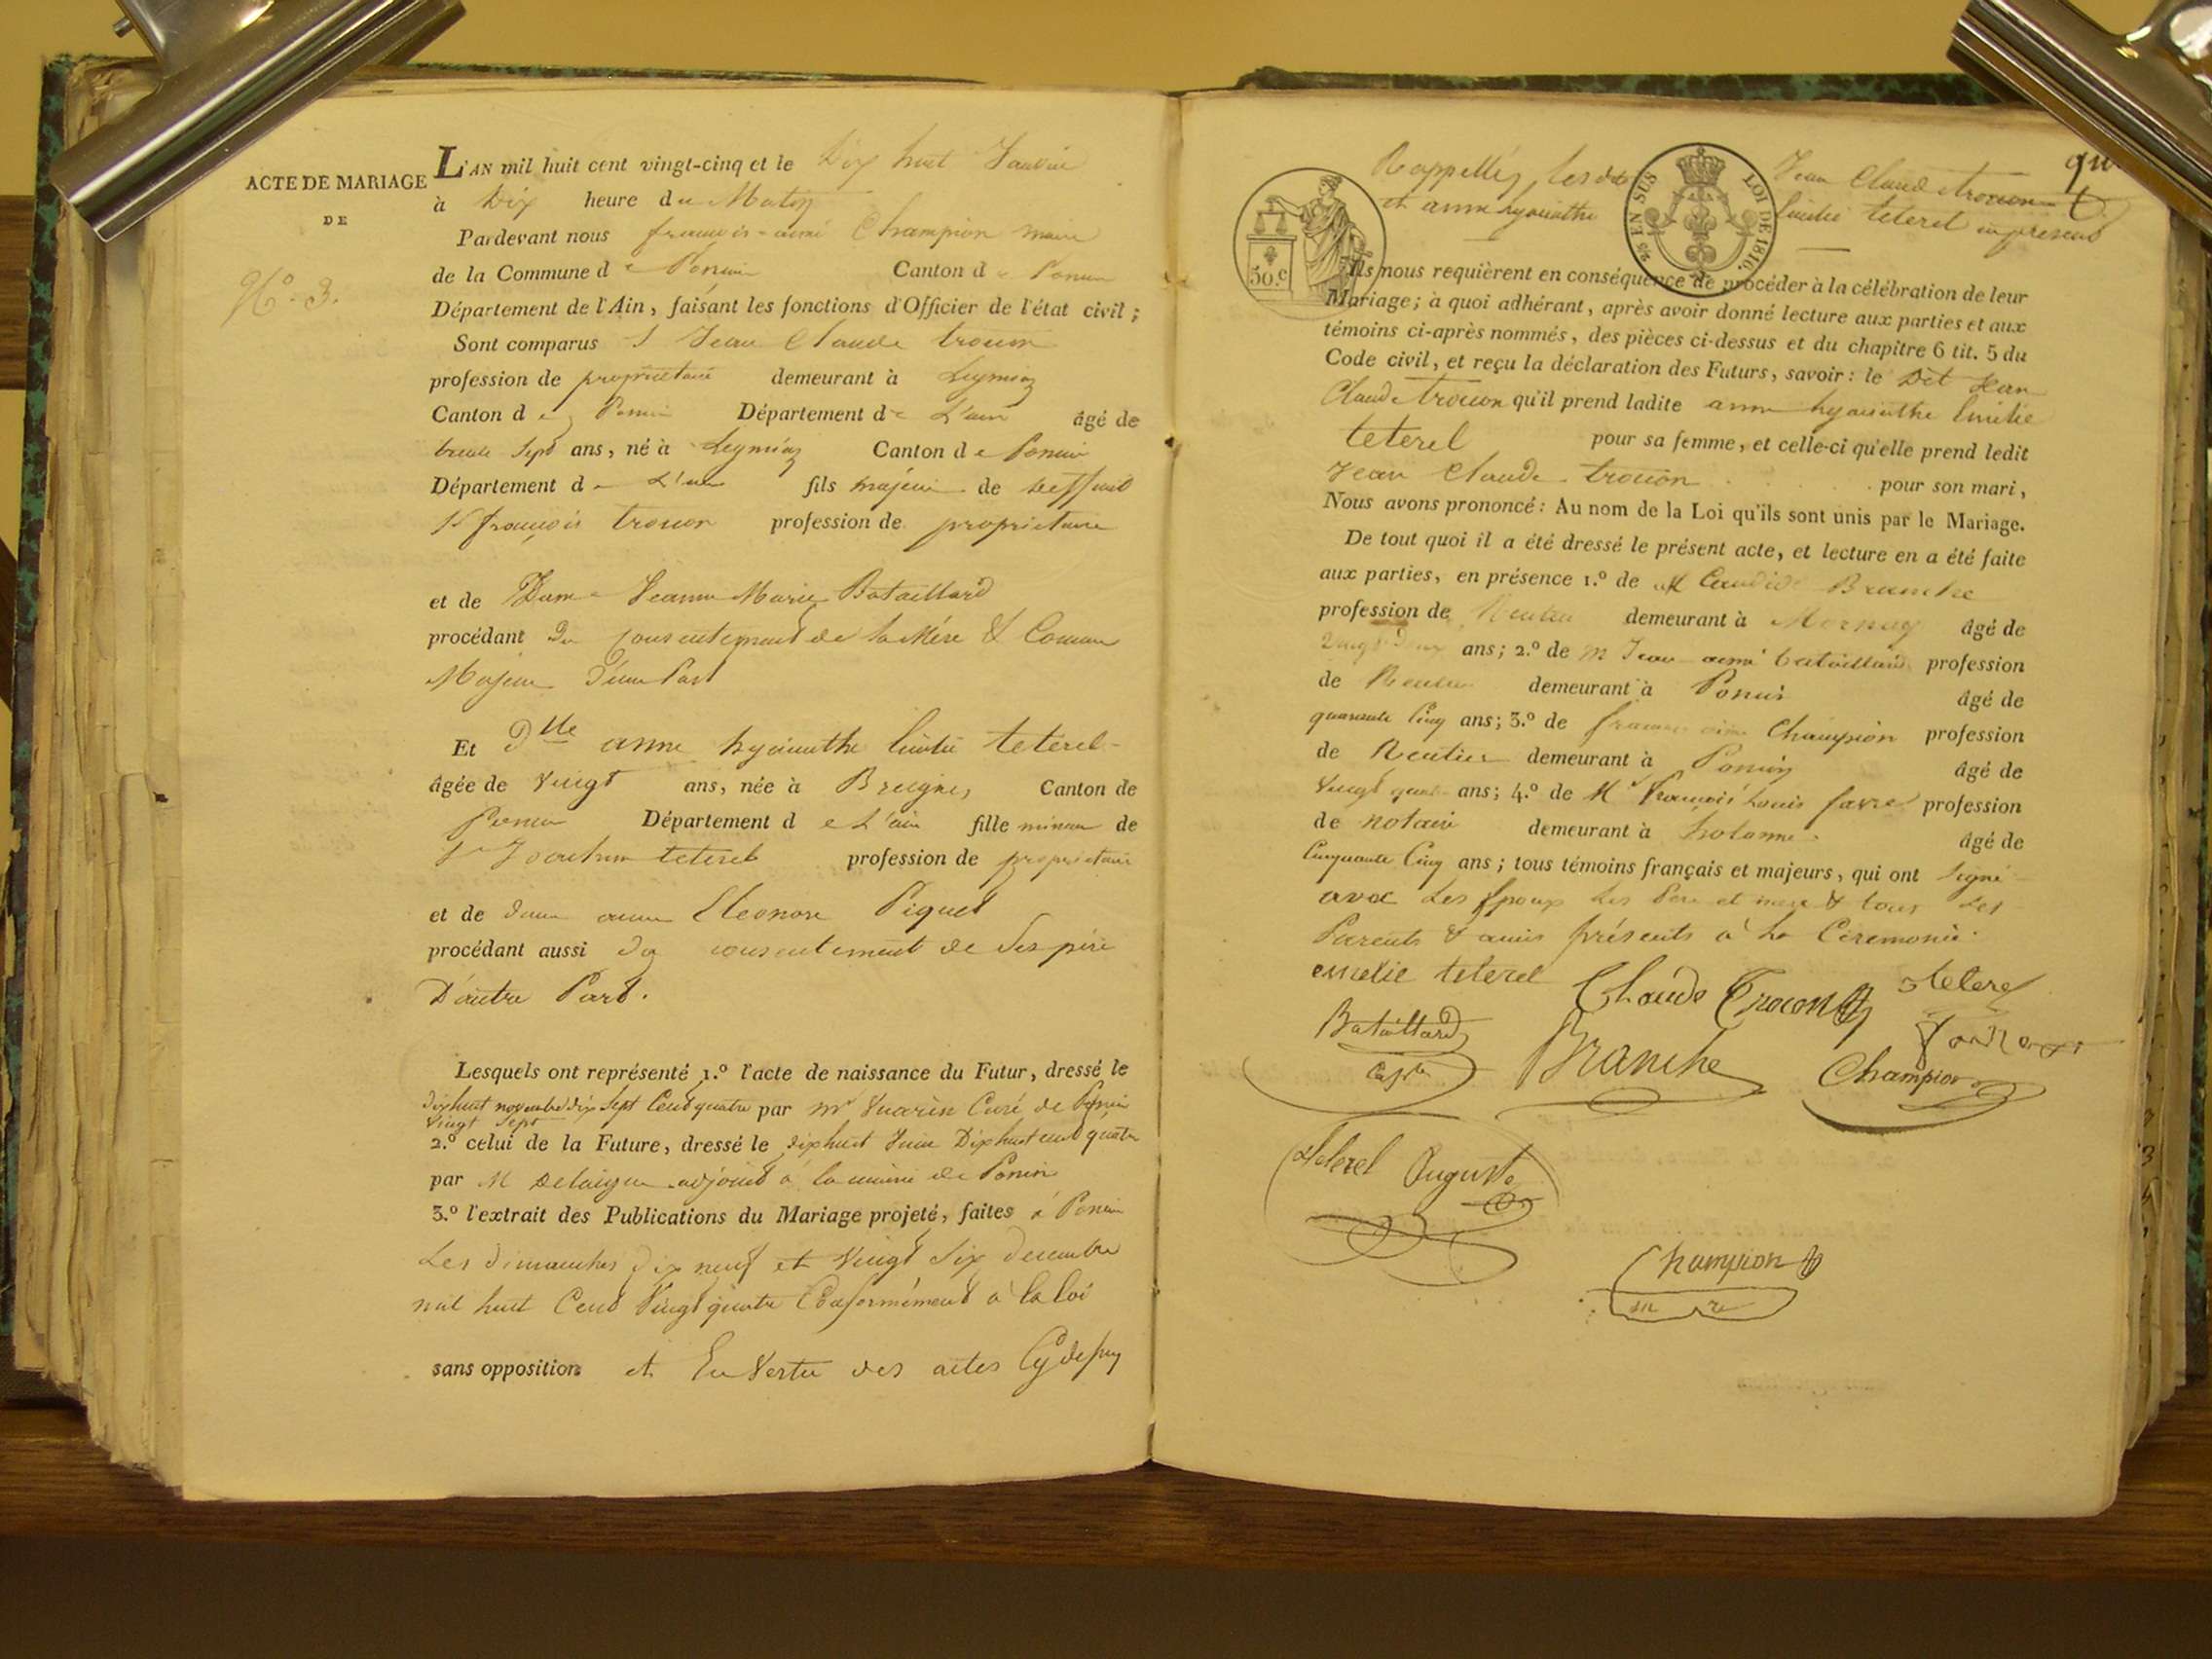 ACTE DE MARIAGE
DE
N.º 3.
L'AN mil huit cent vingt-cinq et le Dix huit Janvier
à Dix heure du Matin
Pardevant nous françois-aimé Champion maire
de la Commune de Poncin Canton de Poncin
Département de l'Ain, faisant les fonctions d'Officier de l'état civil;
Sont comparus S Jean Claude trocon
profession de propriétaire demeurant à Leymiaz
Canton de Poncin Département de L'ain âgé de
trente Sept ans, né à Leymiaz Canton de Poncin
Département de L'ain fils majeur de deffunt
Sr françois trocon profession de proprietaire
et de Dame Jeanne Marie Bataillard
procédant Du Consentement de sa Mére & Comme
Majeur D'une Part
Et Dlle anne hyacinthe Emilie teterel
âgée de vingt ans, née à Breignes Canton de
Poncin Département de L'ain fille mineure de
Sr Joachim teterel profession de proprietaire
et de dame anne Eleonore Piquet
procédant aussi du consentement de Ses pére
D'autre Part.
Lesquels ont représenté 1.º l'acte de naissance du Futur, dressé le
dixhuit novembre dix Sept Cent quatre par mr Vuarin Curé de Poncin
vingt Sept
2.º celui de la Future, dressé le dixhuit Juin Dixhuit cent quatre
par M Delaigue adjoint à la mairie de Poncin
3.º l'extrait des Publications du Mariage projeté, faites à Poncin
Les dimanches dix neuf et Vingt Six decembre
mil huit Cent Vingt quatre Conformément à la loi
sans opposition et En Vertu des actes Cy dessus
Rappellés, lesdits Jean Claude trocon
et anne hyacinthe Emilie teterel
50.c
EN SUS LOI DE 1816.
Ils nous requièrent en conséquence de procéder à la célébration de leur
Mariage; à quoi adhérant, après avoir donné lecture aux parties et aux
témoins ci-après nommés, des pièces ci-dessus et du chapitre 6 tit. 5 du
Code civil, et reçu la déclaration des Futurs, savoir: le Dit Jean
Claude trocon qu'il prend ladite anne hyacinthe Emilie
teterel pour sa femme, et celle-ci qu'elle prend ledit
Jean Claude trocon pour son mari,
Nous avons prononcé: Au nom de la Loi qu'ils sont unis par le Mariage.
De tout quoi il a été dressé le présent acte, et lecture en a été faite
aux parties, en présence 1.º de M Candide Branche
profession de Rentier demeurant à Mornay âgé de
ans; 2.º de m Jean aimé bataillard profession
de Rentier demeurant à Poncin âgé de
quarante Cinq ans; 3.º de françois aimé Champion profession
de Rentier demeurant à Poncin âgé de
Vingt quatre ans; 4.º de Mr François Louis favre profession
de notaire demeurant à hotonne âgé de
Cinquante Cinq ans; tous témoins français et majeurs, qui ont Signé
avec Les Epoux Les Pere et mere & tous Les
Parents & amis présents à La Céremonie.
emelie teterel Claude Trocon teterel
Bataillard Branche Champion
Teterel Auguste
Champion